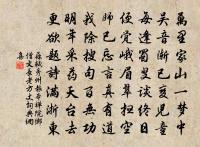 萬里家山一夢中
吳音漸已變兒童
每逢蜀叟談終日
便覺峨眉翠掃空
師已忘言真有道
我除搜句百無功
明年采藥天台去
更欲題詩滿浙東
蘇軾秀州報本禪院鄉
僧文長老方丈詞典網
集